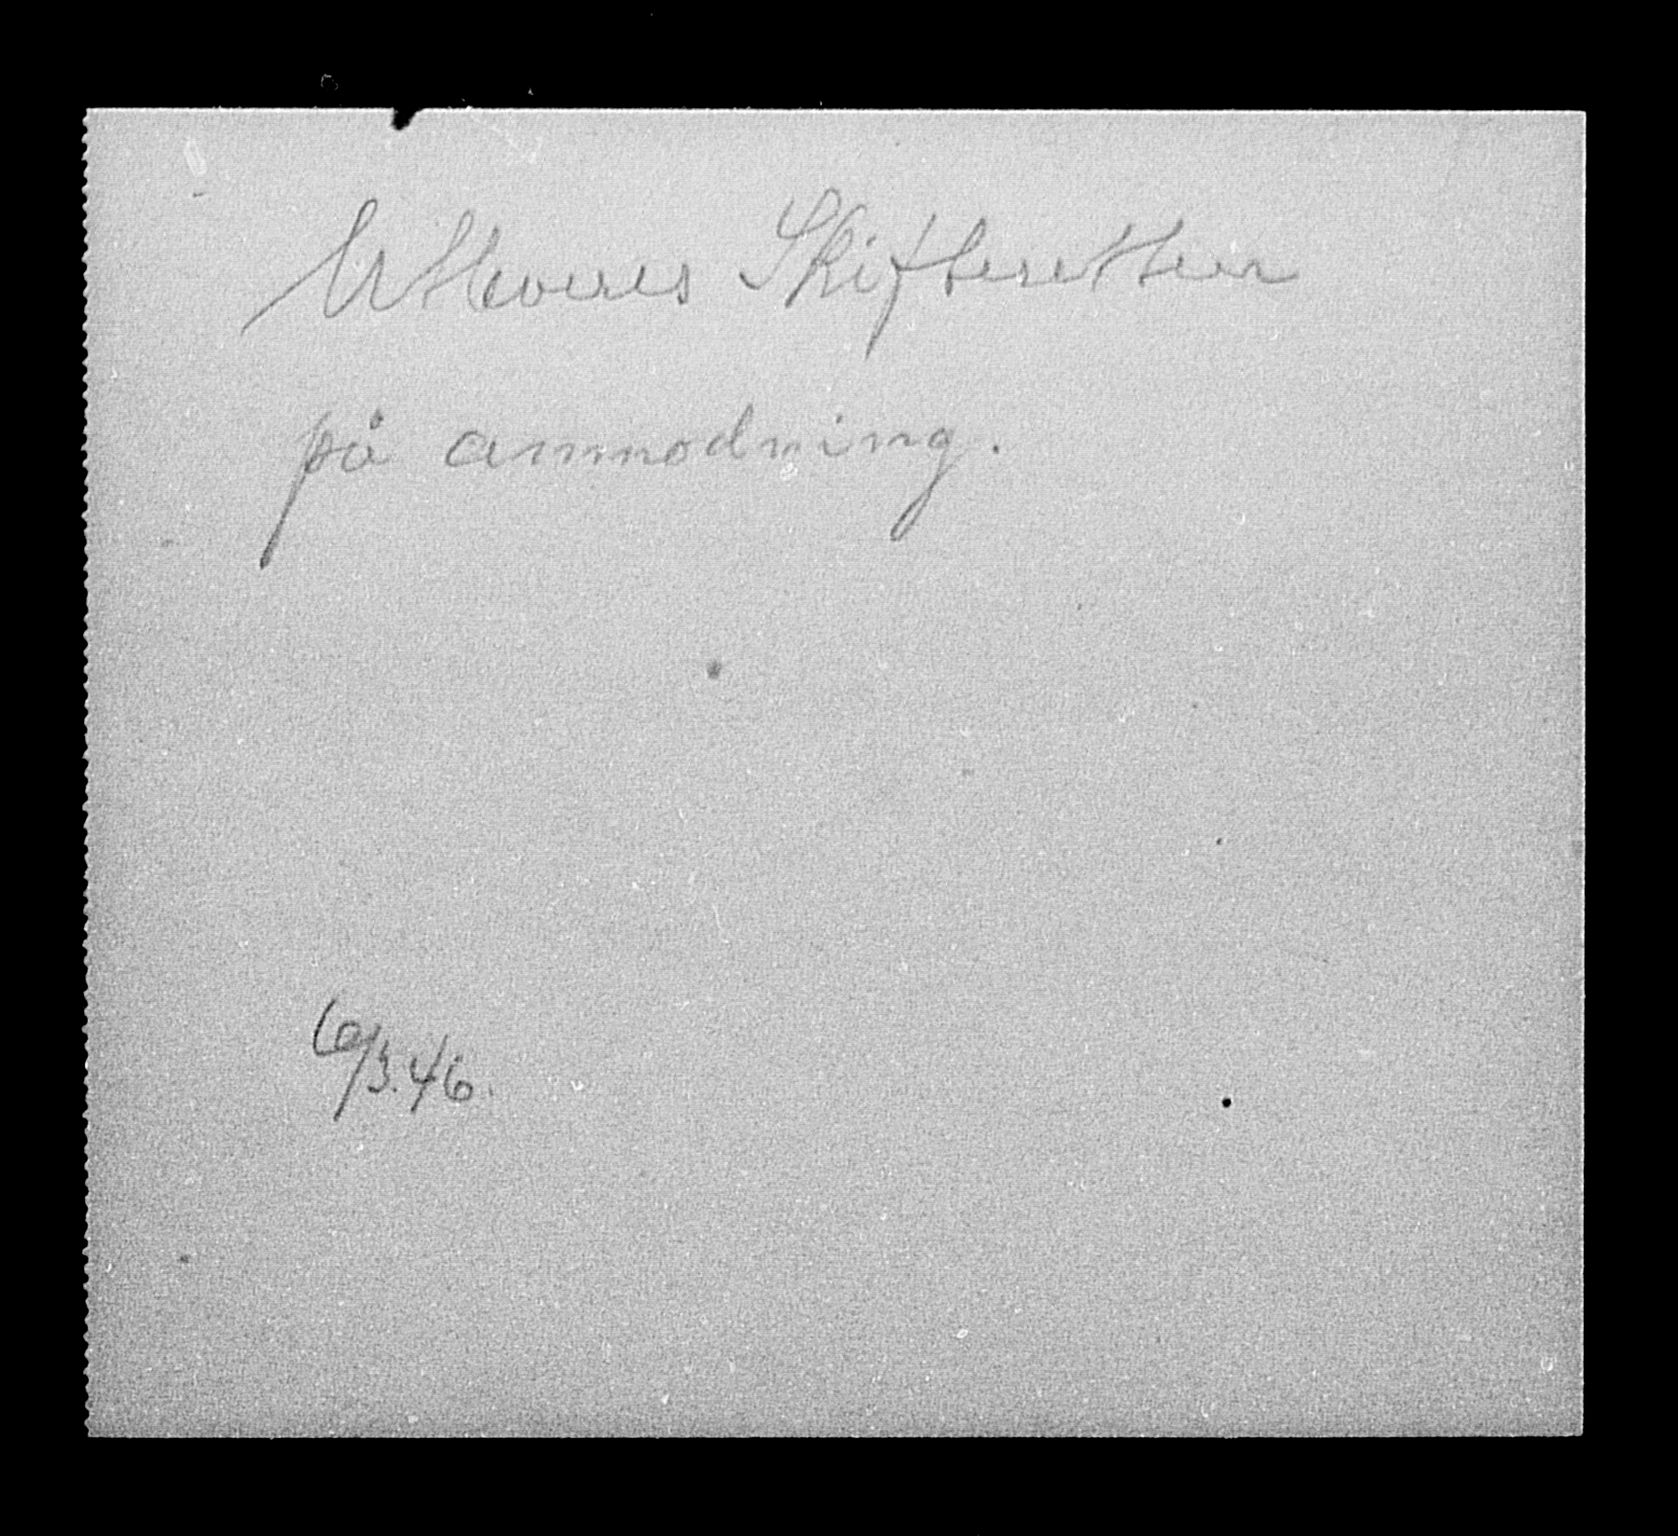 Utleveres Skifteretten
på anmodning.
6/3.46.